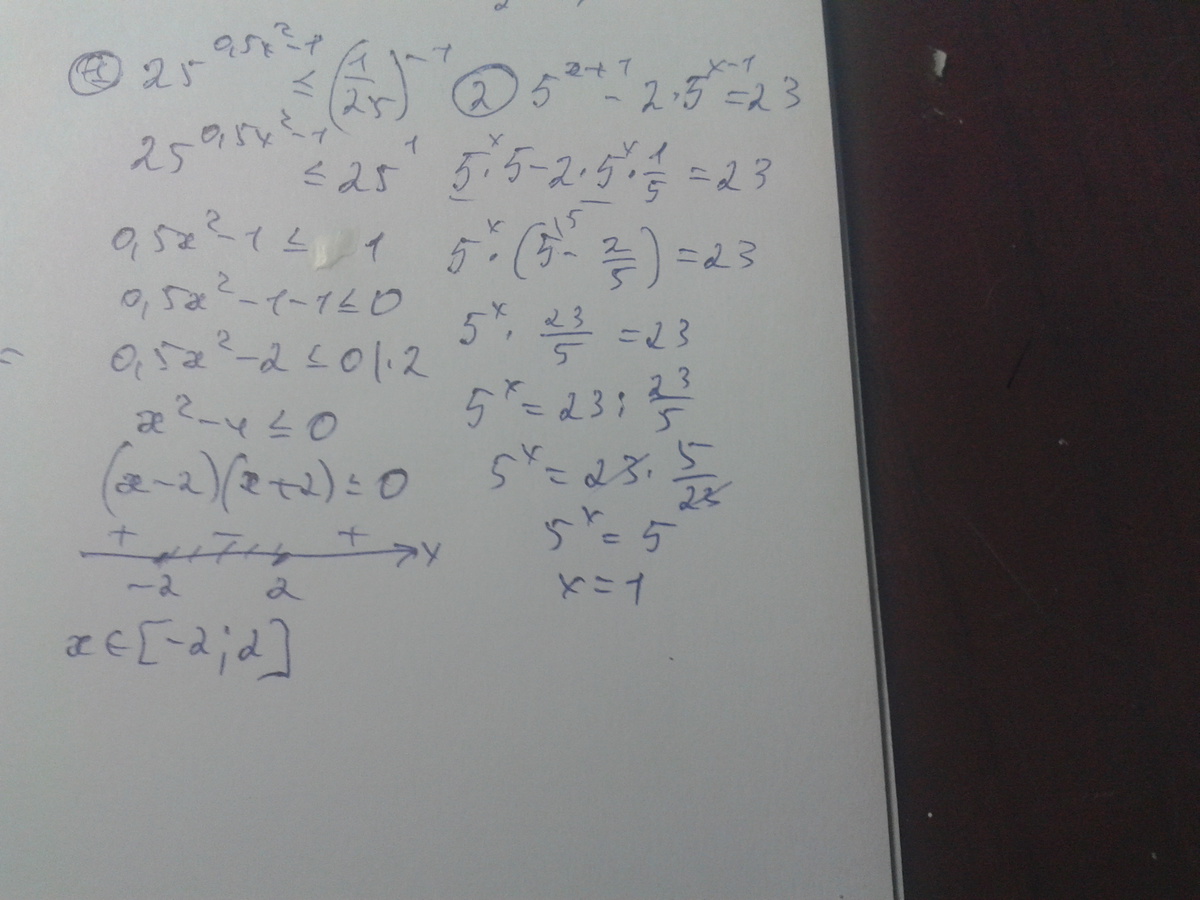 ① 25^(0,5x²-1) ≤ (1/25)^(-1)
25^(0,5x²-1) ≤ 25^1
0,5x²-1 ≤ 1
0,5x²-1-1≤0
0,5x²-2 ≤ 0 |·2
x²-4 ≤ 0
(x-2)(x+2) ≤ 0
+ - + x
-2 2
x∈[-2;2]
② 5^(x+1) - 2·5^(x-1) = 23
5^x·5-2·5^x·1/5 = 23
5^x·(5^(\5) - 2/5) = 23
5^x·23/5 = 23
5^x = 23 : 23/5
5^x = 23·5/23
5^x = 5
x = 1
=